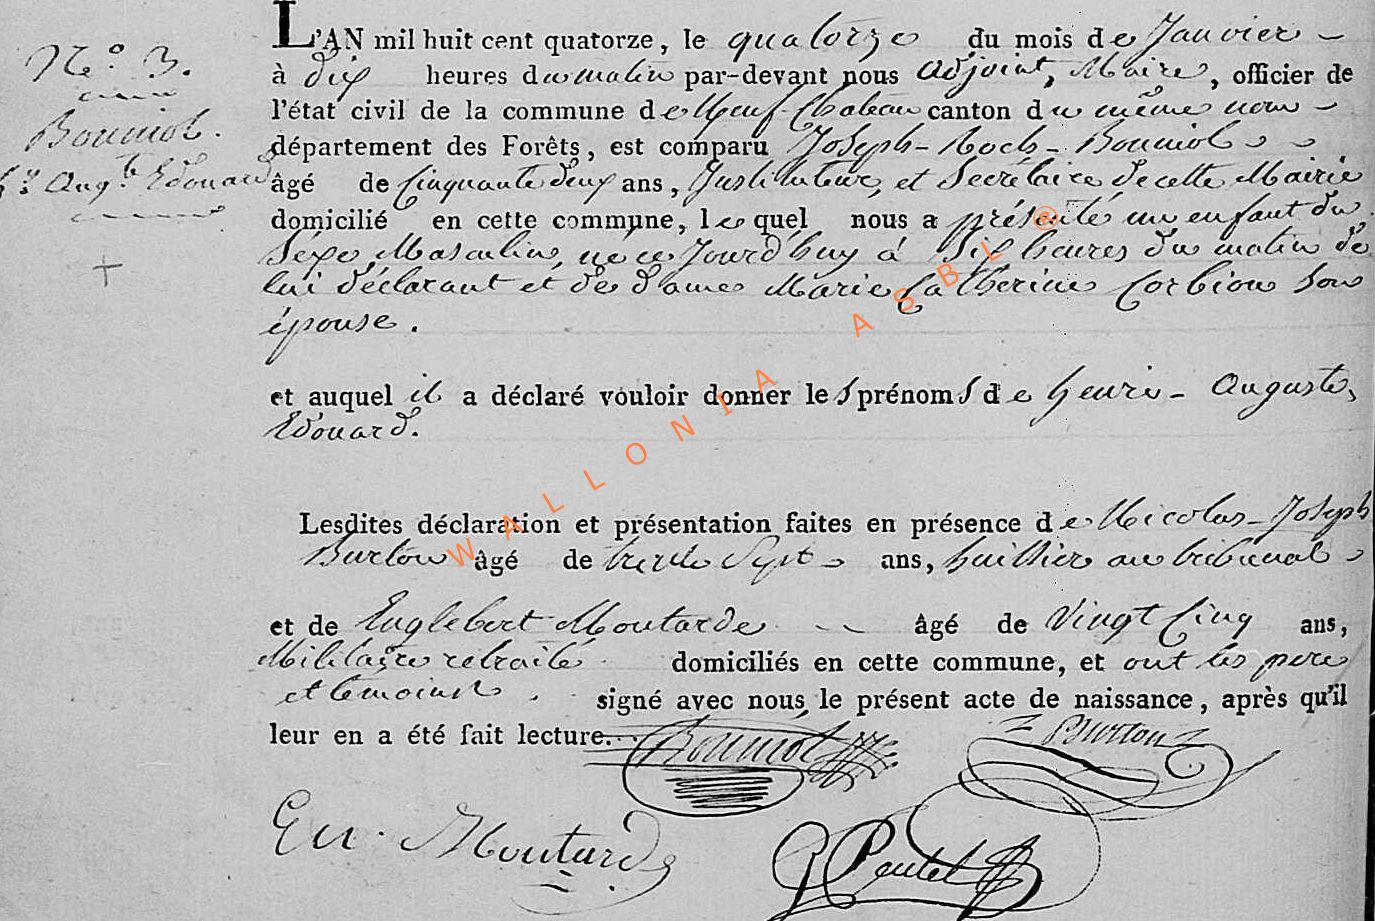 N.° 3.
Bouniol.
h.ry Aug.te Edouard
L'AN mil huit cent quatorze, le quatorze du mois de Janvier
à dix heures du matin par-devant nous adjoint, Maire, officier de
l'état civil de la commune de Neuf-Chateau canton du même nom
département des Forêts, est comparu Joseph-Roch-Bouniol
âgé de Cinquante deux ans, Instituteur, et Secrétaire de cette Mairie
domicilié en cette commune, lequel nous a présenté un enfant du
Sexe Masculin, né ce Jourd'huy à Six heures du matin de
lui déclarant et de dame Marie Catherine Corbion Son
épouse.
et auquel il a déclaré vouloir donner les prénomS de henri-Auguste,
Edouard.
Lesdites déclaration et présentation faites en présence de Nicolas-Joseph
Burton âgé de trente Sept ans, huissier au tribunal
et de Englebert Moutarde âgé de Vingt Cinq ans,
Militaire retraité domiciliés en cette commune, et ont les pere
et temoins signé avec nous le présent acte de naissance, après qu'il
leur en a été fait lecture.
Bouniol
Burton
En. Moutarde
WALLONIA ASBL ®